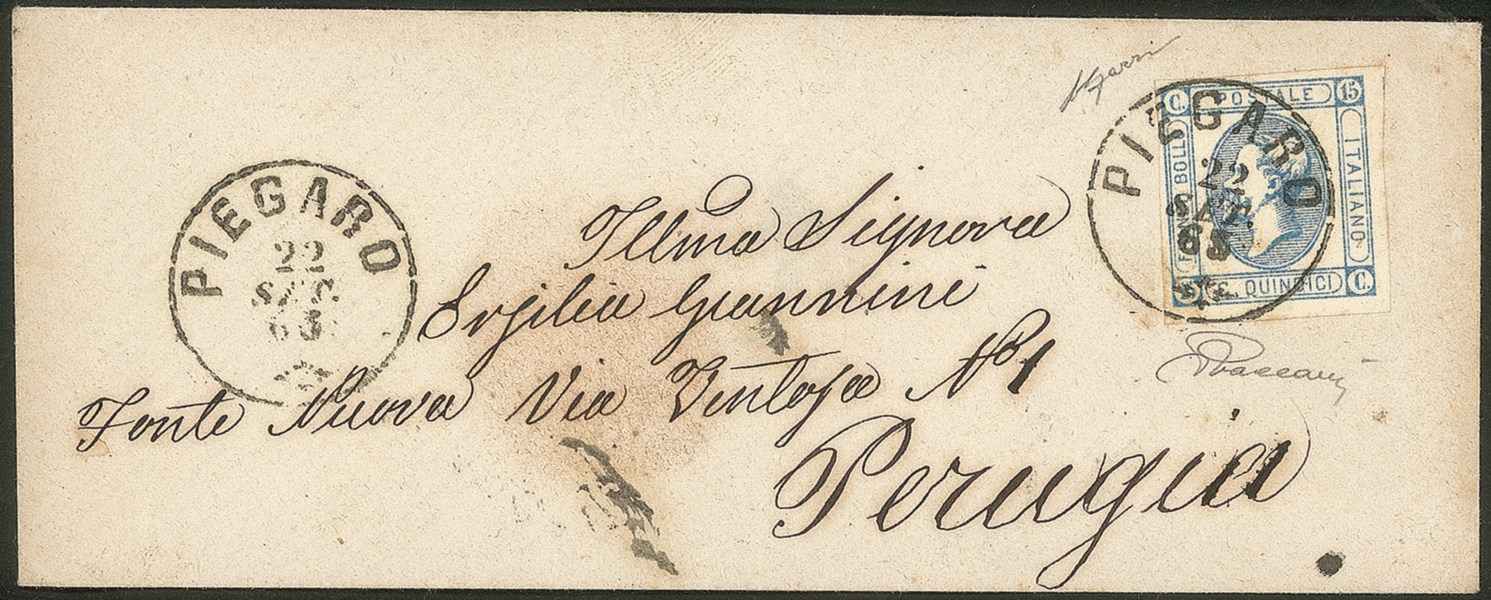 PIEGARO
22
SET.
63
C. POSTALE 15
BOLLO
ITALIANO
C. QUINDICI C.
PIEGARO
22
SET.
63
Illma Signora
Ersilia Giannini
Fonte Nuova Via Ventosa No 1
Perugia